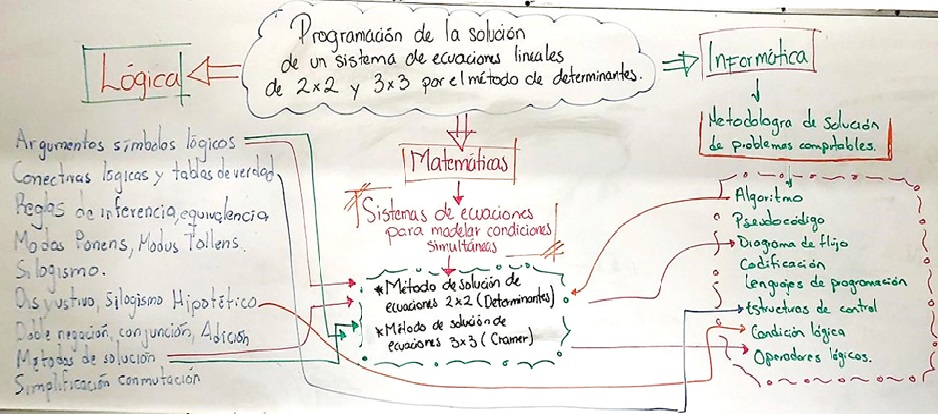 Programación de la solución
de un sistema de ecuaciones lineales
de 2x2 y 3x3 por el método de determinantes.
Lógica
Argumentos símbolos lógicos
Conectivas lógicas y tablas de verdad
Reglas de inferencia, equivalencia
Modos Ponens, Modus Tollens.
Silogismo.
Disyustivo, Silogismo Hipotético
Doble negación, conjunción, Adición
Métodos de solución
Simplificación conmutación
Matemáticas
Sistemas de ecuaciones
para modelar condiciones
simultáneas
*Método de solución de
ecuaciones 2x2 (Determinantes)
*Método de solución de
ecuaciones 3x3 (Cramer)
Informática
Metodologra de Solución
de problemas computables.
Algoritmo
Pseudocódigo
Diagrama de flujo
Codificación
Lenguajes de programación
Estructuras de control
Condición lógica
Operadores lógicos.